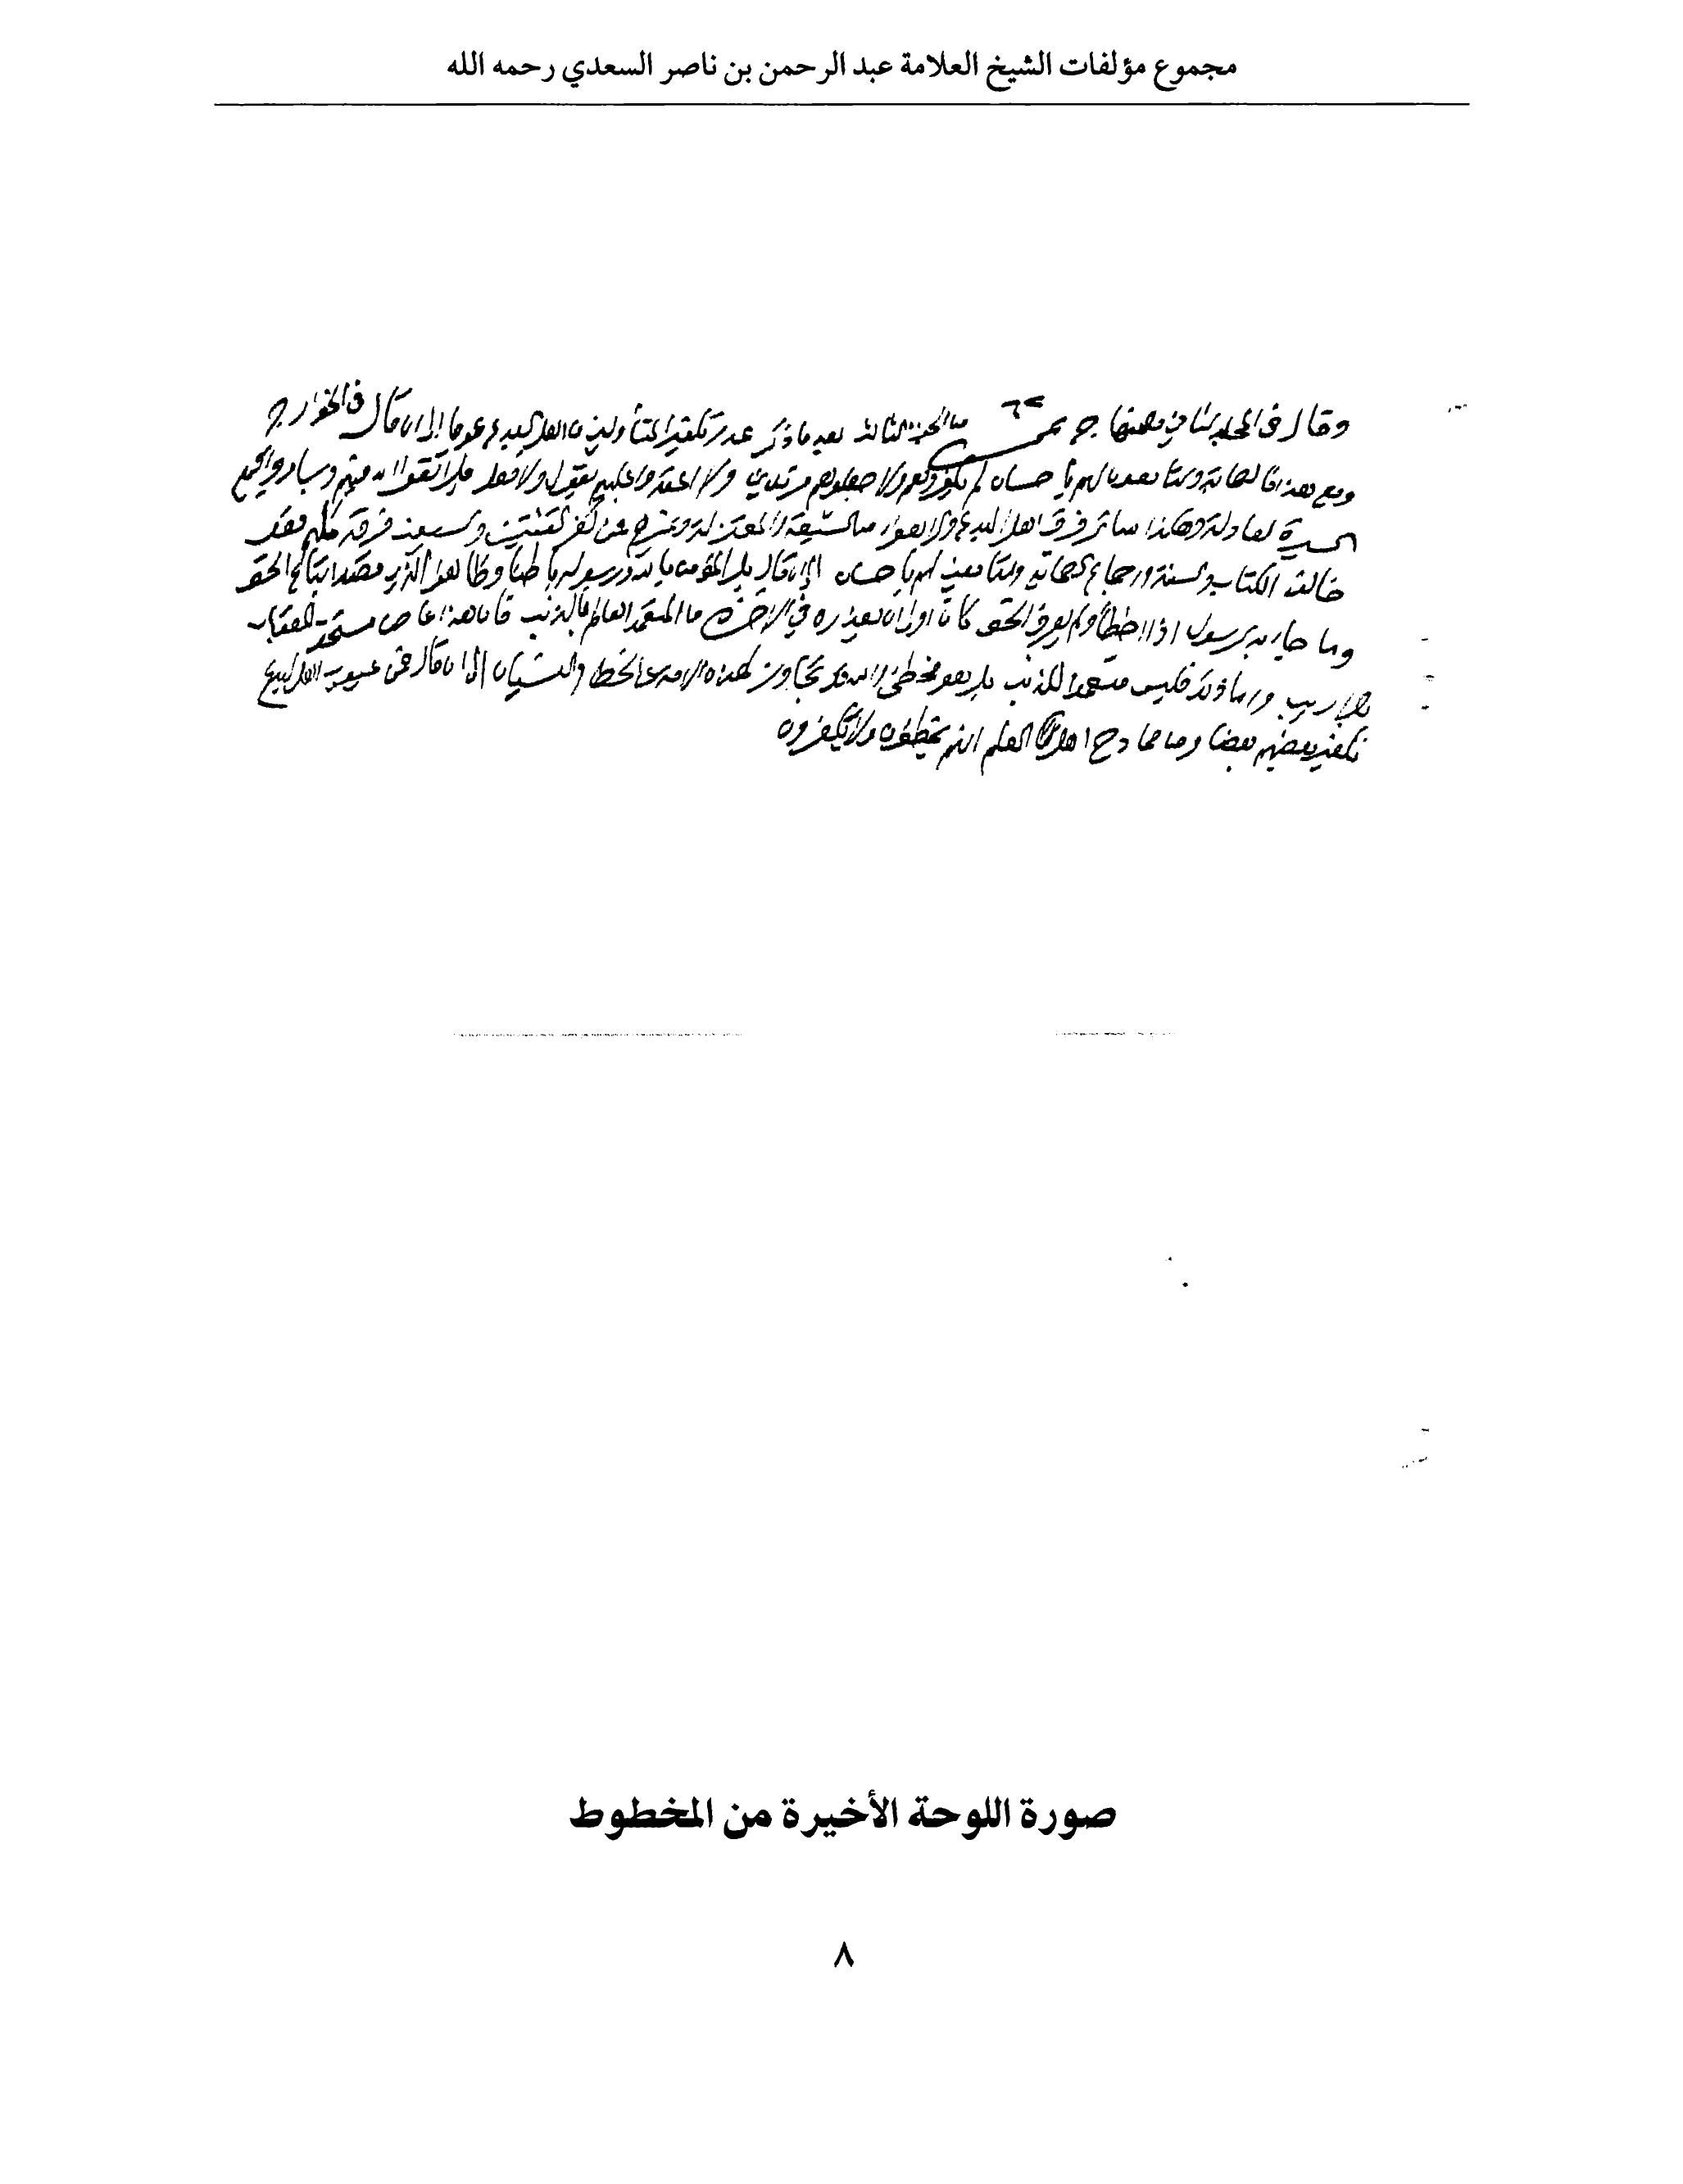 مجموع مؤلفات الشيخ العلامة عبد الرحمن بن ناصر السعدي رحمه الله
وقال في من الجزء الثالث بعد ما ذكر عدم تكفير المتأولين من اهل البدع عموما إلى ان قال في الخوارج
ومع هذا فالصحابة والتابعون لهم باحسان لم يكفروهم ولا جعلوهم مرتدين ولا اعتدوا عليهم بقول ولا فعل بل اتقوا الله فيهم وساروا فيهم
السيرة العادلة وهكذا سائر فرق اهل البدع والاهواء من الشيعة والمعتزلة وغيرهم فمن كفر الثنتين والسبعين فرقة كلهم فقد
خالف الكتاب والسنة واجماع الصحابة والتابعين لهم باحسان إلى ان قال بل المؤمن بالله ورسوله باطنا وظاهرا الذي قصد اتباع الحق
وما جاء به الرسول اذا اخطأ ولم يعرف الحق كان اولى ان يعذره في الآخرة من المتعمد العالم بالذنب فان هذا عاص مستحق للعقاب
بلا ريب واما ذلك فليس متعمدا للذنب بل هو مخطئ والله قد تجاوز لهذه الامة عن الخطأ والنسيان إلى ان قال فمن عيوب اهل البدع
تكفير بعضهم بعضا ومن ممادح اهل العلم انهم يخطئون ولا يكفرون
صورة اللوحة الأخيرة من المخطوط
٨